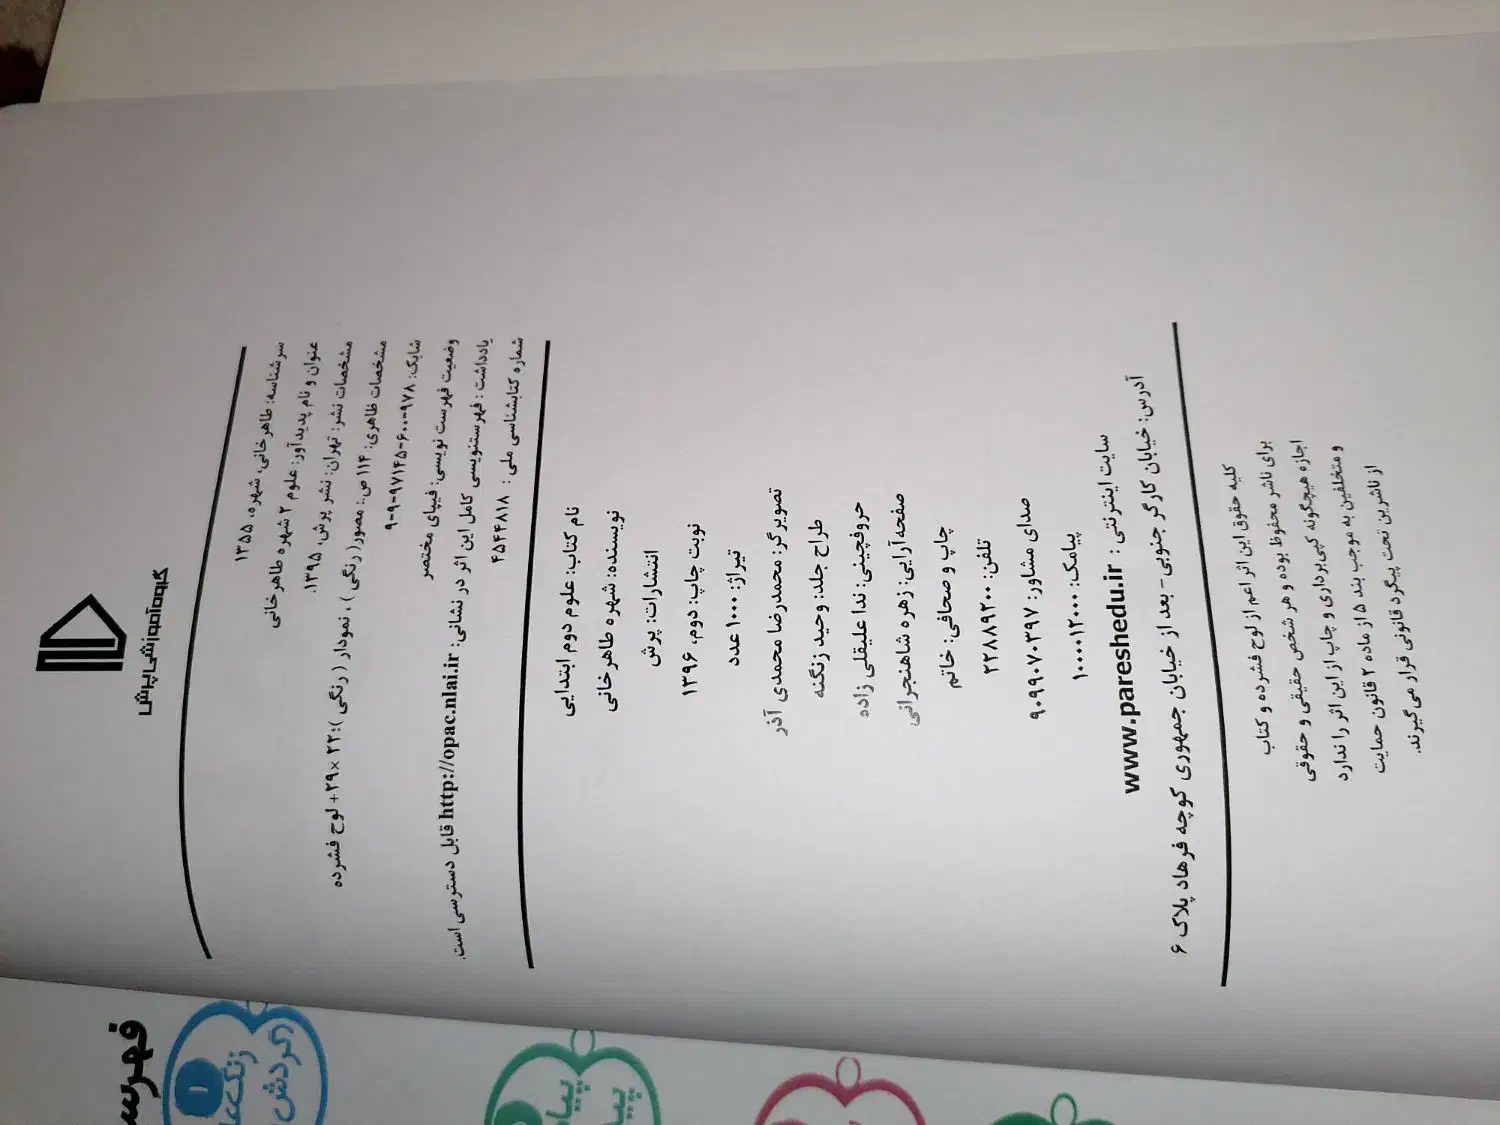 گروه آموزشی پرش
سرشناسه: طاهرخانی، شهره، ۱۳۵۵
عنوان و نام پدیدآور: علوم ۲ شهره طاهرخانی
مشخصات نشر: تهران: نشر پرش، ۱۳۹۵.
مشخصات ظاهری: ۱۱۴ص.: مصور( رنگی ) ، نمودار ( رنگی )؛ ۲۲ × ۲۹+ لوح فشرده
شابک: ۹۷۸-۶۰۰-۹۷۱۴۵-۹-۹
وضعیت فهرست نویسی: فیپای مختصر
یادداشت : فهرستنویسی کامل این اثر در نشانی: http://opac.nlai.ir قابل دسترسی است.
شماره کتابشناسی ملی : ۴۵۴۴۸۱۸
نام کتاب: علوم دوم ابتدایی
نویسنده: شهره طاهرخانی
انتشارات: پرش
نوبت چاپ: دوم، ۱۳۹۶
تیراژ: ۱۰۰۰ عدد
تصویرگر: محمدرضا محمدی آذر
طراح جلد: وحید زنگنه
حروفچینی: ندا علیقلی زاده
صفحه آرایی: زهره شاهنجرانی
چاپ و صحافی: خاتم
تلفن: ۲۲۸۸۹۲۰۰
صدای مشاور: ۹۰۹۹۰۷۰۳۹۷
پیامک: ۱۰۰۰۰۱۲۰۰۰
سایت اینترنتی : www.pareshedu.ir
آدرس: خیابان کارگر جنوبی- بعد از خیابان جمهوری کوچه فرهاد پلاک ۶
کلیه حقوق این اثر اعم از لوح فشرده و کتاب
برای ناشر محفوظ بوده و هر شخص حقیقی و حقوقی
اجازه هیچگونه کپی‌برداری و چاپ از این اثر را ندارد
و متخلفین به موجب بند ۵ از ماده ۲ قانون حمایت
از ناشرین تحت پیگرد قانونی قرار می‌گیرند.
۱
زنگ
گردش